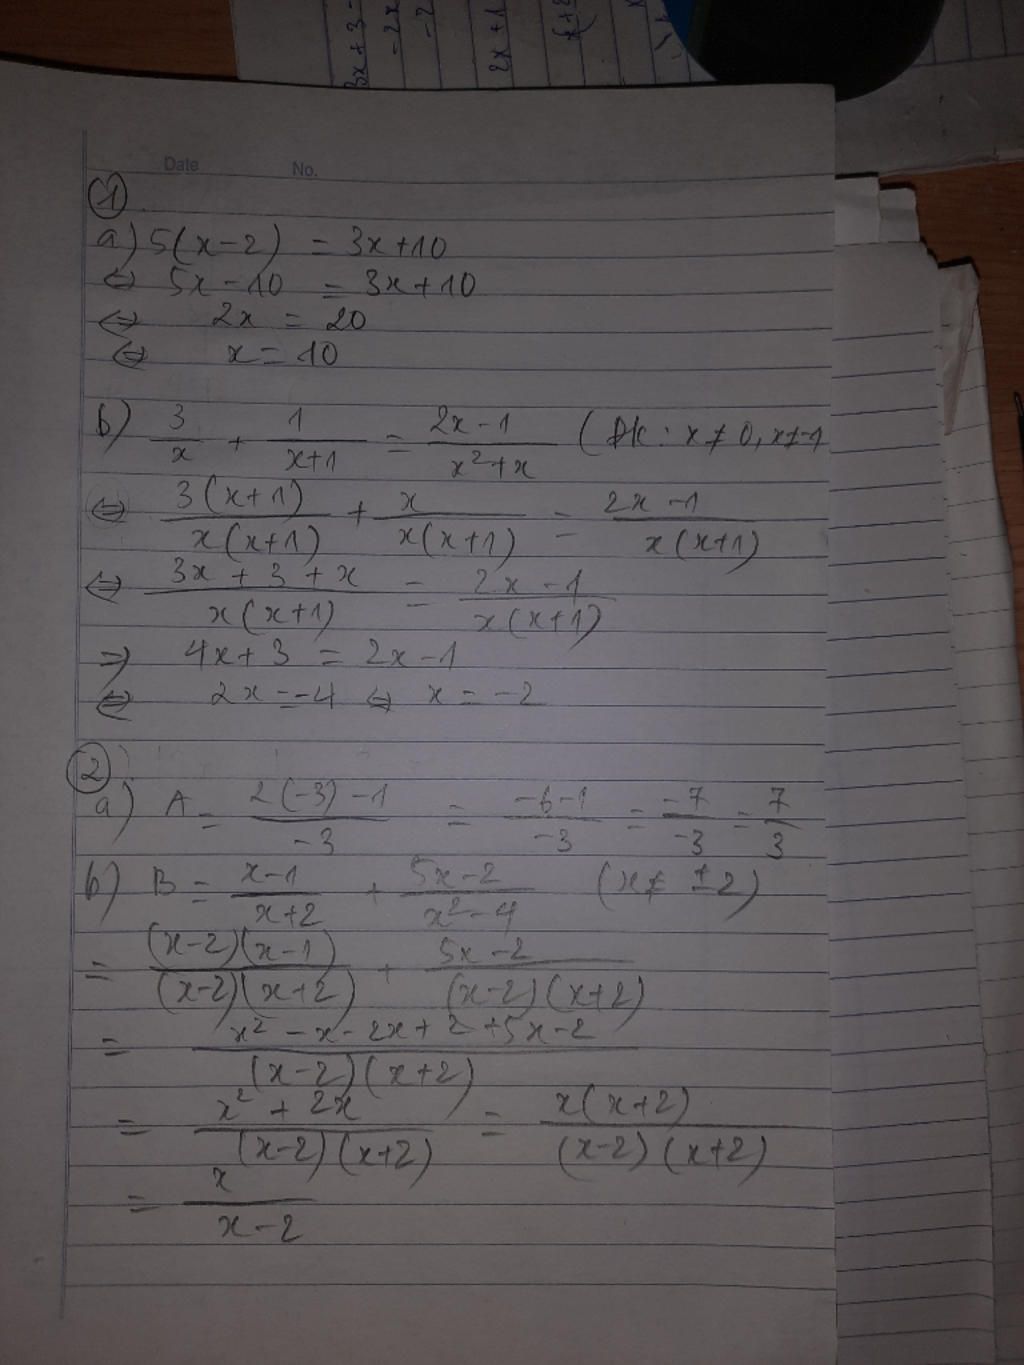 3x + 3 -
-2x
-2
2x + 1
Date No.
①
a) 5(x-2) = 3x+10
⇔ 5x - 10 = 3x + 10
⇔ 2x = 20
⇔ x = 10
b) 3/x + 1/(x+1) = (2x-1)/(x²+x) (Đk: x ≠ 0, x ≠ -1
⇔ 3(x+1)/(x(x+1)) + x/(x(x+1)) = (2x-1)/(x(x+1))
⇔ (3x + 3 + x)/(x(x+1)) = (2x-1)/(x(x+1))
⇒ 4x + 3 = 2x - 1
⇔ 2x = -4 ⇔ x = -2
②
a) A = (2(-3)-1)/(-3) = (-6-1)/(-3) = (-7)/(-3) = 7/3
b) B = (x-1)/(x+2) + (5x-2)/(x²-4) (x ≠ ±2)
= ((x-2)(x-1))/((x-2)(x+2)) + (5x-2)/((x-2)(x+2))
= (x² - x - 2x + 2 + 5x - 2)/((x-2)(x+2))
= (x² + 2x)/((x-2)(x+2)) = (x(x+2))/((x-2)(x+2))
= x/(x-2)